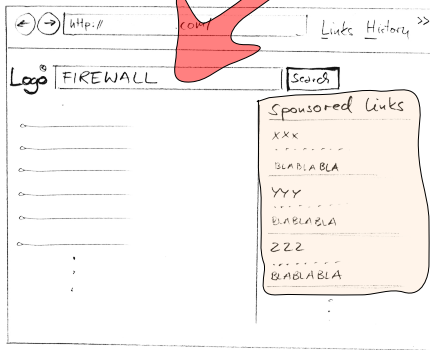 http:// .com/ Links History >>
Logo® FIREWALL Search
Sponsored Links
XXX
BLABLABLA
YYY
BLABLABLA
ZZZ
BLABLABLA